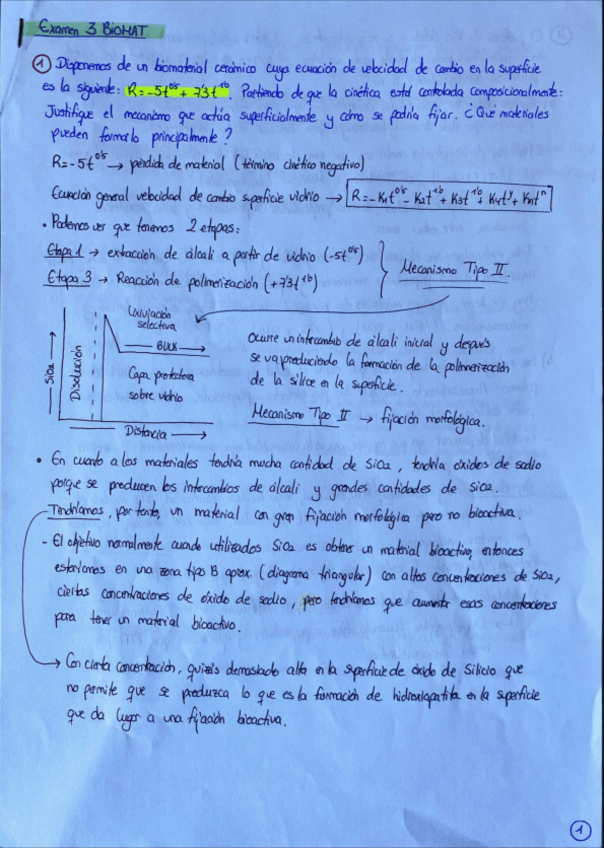 Examen 3 BIOMAT
① Disponemos de un biomaterial cerámico cuya ecuación de velocidad de cambio en la superficie
es la siguiente: R = -5t^0'5 + 7'3t^1'0. Partiendo de que la cinética está controlada composicionalmente:
Justifique el mecanismo que actúa superficialmente y cómo se podría fijar. ¿Qué materiales
pueden formarlo principalmente?
R = -5t^0'5 → pérdida de material (término cinético negativo)
Ecuación general velocidad de cambio superficie vidrio → R = -K1t^0'5 - K2t^1'0 + K3t^1'0 + K4t^y + Knt^n
• Podemos ver que tenemos 2 etapas:
Etapa 1 → extracción de álcali a partir de vidrio (-5t^0'5)
Etapa 3 → Reacción de polimerización (+7'3t^1'0)
Mecanismo Tipo II.
Lixiviación
selectiva
BULK →
SiO2 →
Disolución
Capa protectora
sobre vidrio
Distancia →
Ocurre un intercambio de álcali inicial y después
se va produciendo la formación de la polimerización
de la sílice en la superficie.
Mecanismo Tipo II → fijación morfológica.
• En cuanto a los materiales tendría mucha cantidad de SiO2, tendría óxidos de sodio
porque se producen los intercambios de álcali y grandes cantidades de SiO2.
Tendríamos, por tanto, un material con gran fijación morfológica pero no bioactiva.
- El objetivo normalmente cuando utilizados SiO2 es obtener un material bioactivo, entonces
estaríamos en una zona tipo B aprox. (diagrama triangular) con altas concentraciones de SiO2,
ciertas concentraciones de óxido de sodio, pero tendríamos que aumentar esas concentraciones
para tener un material bioactivo.
→ Con cierta concentración, quizás demasiado alta en la superficie de óxido de Silicio que
no permite que se produzca lo que es la formación de hidroxiapatita en la superficie
que da lugar a una fijación bioactiva.
1